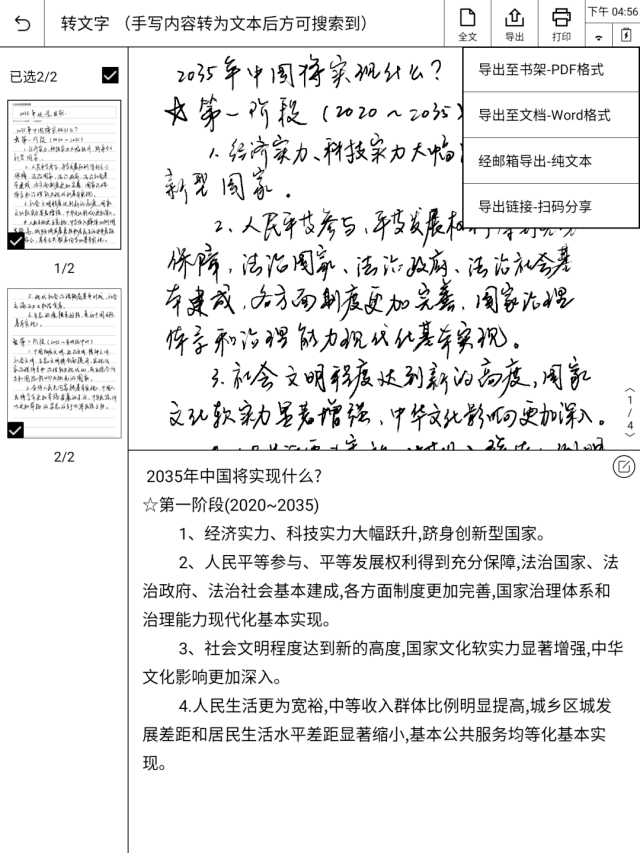 转文字 （手写内容转为文本后方可搜索到）
全文
导出
打印
下午 04:56
已选2/2
1/2
2/2
导出至书架-PDF格式
导出至文档-Word格式
经邮箱导出-纯文本
导出链接-扫码分享
2035年中国将实现什么？
☆第一阶段（2020～2035）
1、经济实力、科技实力大幅
新型国家。
2、人民平等参与、平等发展权
保障，法治国家、法治政府、法治社会基
本建成，各方面制度更加完善，国家治理
体系和治理能力现代化基本实现。
3、社会文明程度达到新的高度，国家
文化软实力显著增强，中华文化影响更加深入。
1/4
2035年中国将实现什么?
☆第一阶段(2020~2035)
1、经济实力、科技实力大幅跃升,跻身创新型国家。
2、人民平等参与、平等发展权利得到充分保障,法治国家、法
治政府、法治社会基本建成,各方面制度更加完善,国家治理体系和
治理能力现代化基本实现。
3、社会文明程度达到新的高度,国家文化软实力显著增强,中华
文化影响更加深入。
4.人民生活更为宽裕,中等收入群体比例明显提高,城乡区城发
展差距和居民生活水平差距显著缩小,基本公共服务均等化基本实
现。